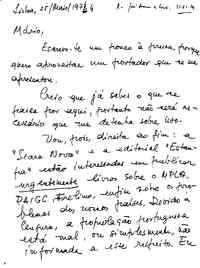 Lisboa, 25/Maio/1974
Mário,
Escrevo-te um pouco à pressa, porque
quero aproveitar um portador que se me
apresentou.
Creio que já sabes o que se
passa por aqui, portanto não será ne-
cessário que me detenha sobre isto.
Vou, pois, direita ao fim: a
"Seara Nova" e a editorial "Estam-
pa" estão interessadas em publicar,
urgentemente livros sobre o MPLA,
PAIGC, Frelimo, enfim sobre os pro-
blemas dos novos países. Devido à
censura, a população portuguesa
está mal, ou simplesmente, não
informada a este respeito. Eu